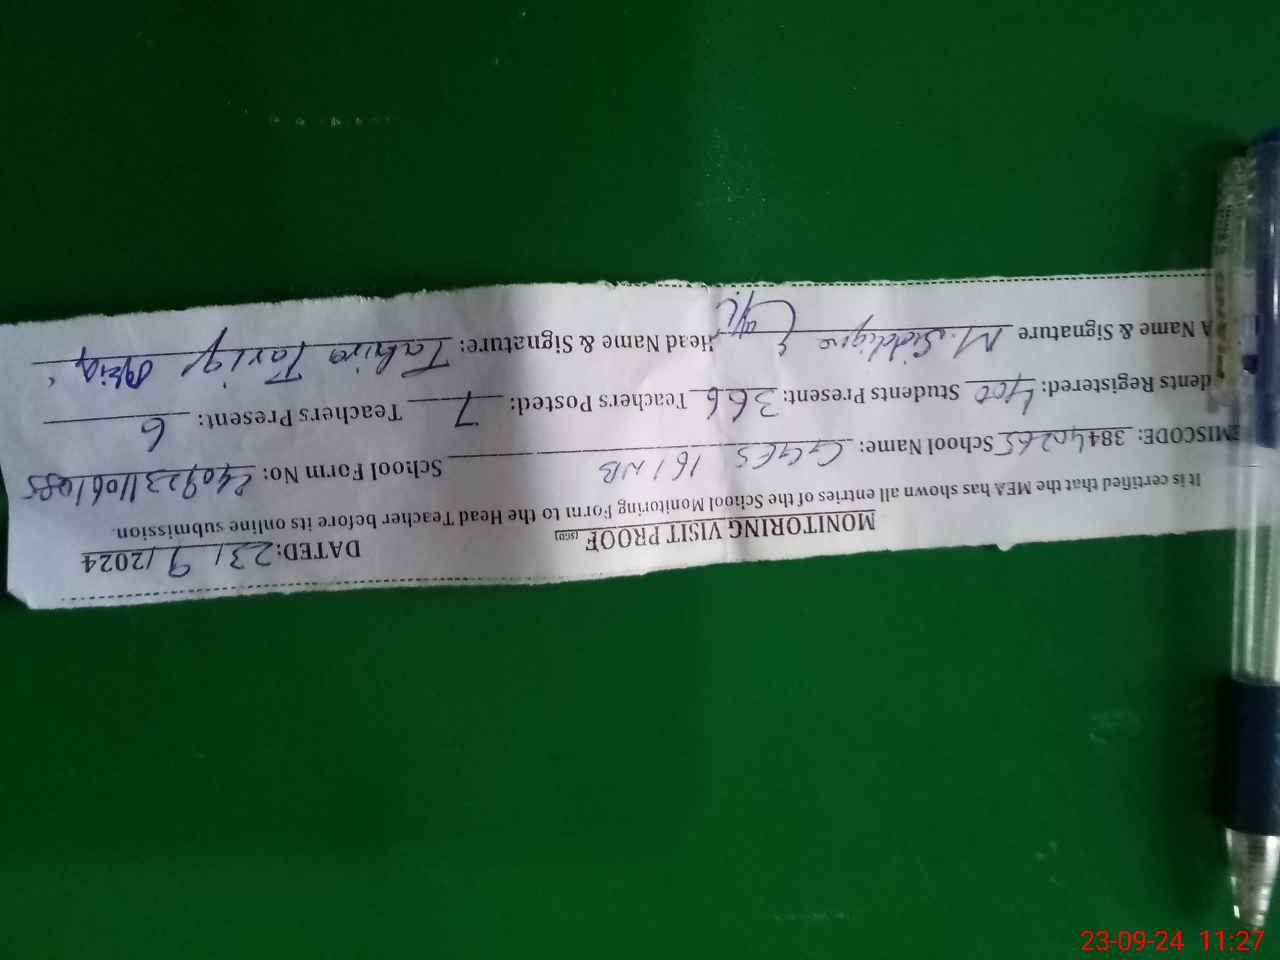 MONITORING VISIT PROOF (SGD) DATED: 23/9/2024
It is certified that the MEA has shown all entries of the School Monitoring Form to the Head Teacher before its online submission.
EMISCODE: 38440265 School Name: GGES 161 NB School Form No:
dents Registered: 400 Students Present: 366 Teachers Posted: 7 Teachers Present: 6
A Name & Signature M. Siddique Head Name & Signature: Tahira Tariq
23-09-24 11:27